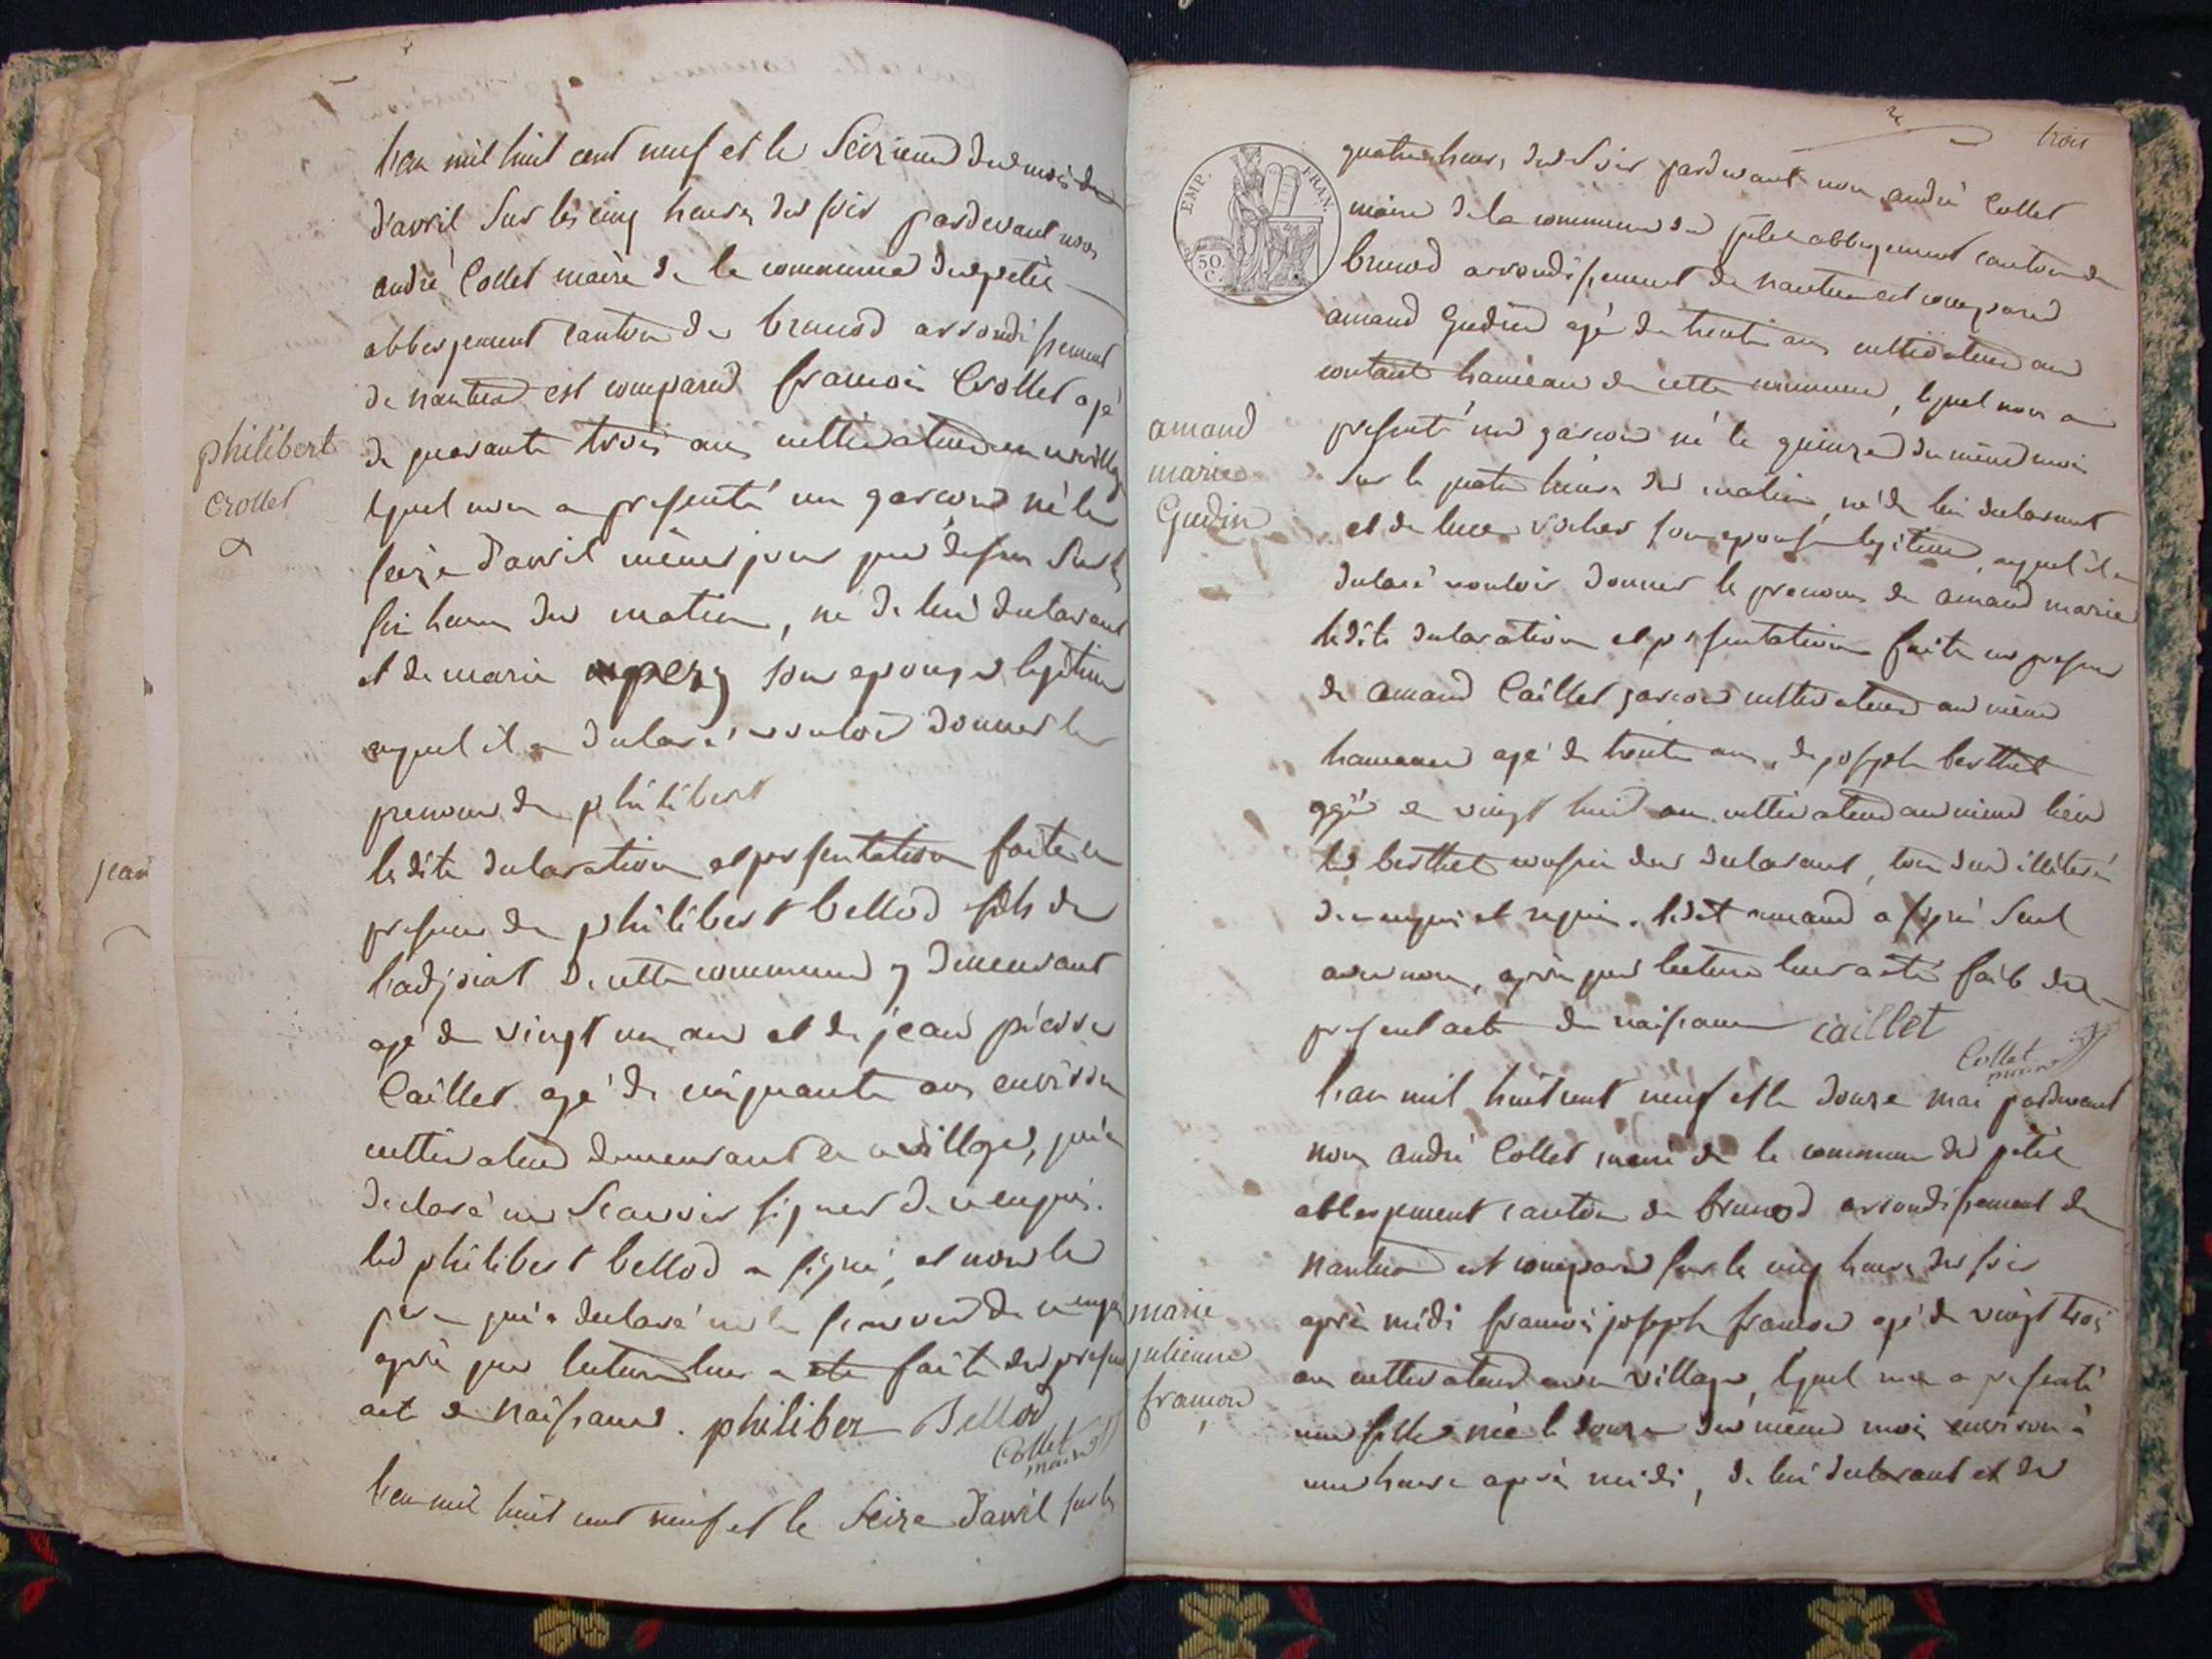 l'an mil huit cent neuf et le Seizieme du mois de
d'avril Sur les cinq heures du soir pardevant nous
andré Collet maire de la commune du petit
abbergement canton de brenod arrondissement
de nantua est comparu francois Crollet agé
de quarante trois ans cultivateur en ce village
philibert
crollet
lequel nous a presenté un garcon né le
seize d'avril même jour que dessus Sur les
six heures du matin, né de lui declarant
et de marie son epouse legitime
auquel il a declaré vouloir donner le
prenom de philibert
lesdite declaration et presentation faite en
presence de philibert bellod fils de
l'adjoint de cette commune y demeurant
agé de vingt un ans et de jean pierre
Caillet agé de cinquante ans environ
cultivateur demeurant en ce village, qui a
declaré ne scavoir signer de ce enquis.
led philibert bellod a signé, et non le
pere qui a declaré ne le scavoir de ce enquis
après que lecture leur a été fait du present
acte de naissance. philiber Bellod
Collet
maire
l'an mil huit cent neuf et le Seize d'avril sur les
jean
trois
EMP. FRAN.
50
C.
quatre heures du Soir pardevant nous andré Collet
maire de la commune du petit abbergement canton de
brenod arrondissement de nantua est comparu
amand Gudin agé de trente ans cultivateur au
hameau de cette commune, lequel nous a
amand
marie
Gudin
presenté un garcon né le quinze du même mois
sur les quatre heures du matin, né de lui declarant
et de son epouse legitime, auquel il a
declaré vouloir donner le prenom de amand marie
lesdite declaration et presentation faite en presence
de amand Caillet garcon cultivateur au même
hameau agé de trente ans, de joseph berthet
agé de vingt huit ans cultivateur au même lieu
led berthet cousin du declarant, tous deux illiteré
de ce enquis et requis. ledit amand a signé Seul
avec nous, après que lecture leur a été fait du
present acte de naissance caillet
Collet
maire
l'an mil huit cent neuf et le douze mai pardevant
nous andré Collet maire de la commune du petit
abbergement canton de brenod arrondissement de
nantua est comparu sur les cinq heures du soir
après midi francois joseph framon agé de vingt trois
marie
julienne
framon
ans cultivateur en ce village, lequel nous a presenté
une fille née le douze du même mois environ à
une heure après midi, de lui declarant et de